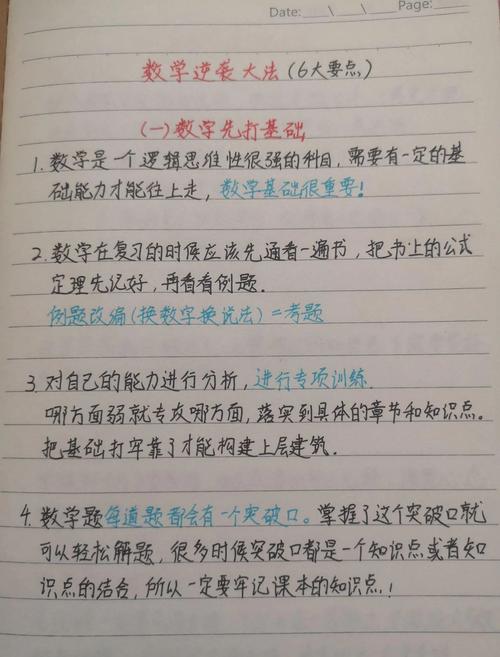 Date: \ \ Page:
数学逆袭大法(6大要点)
(一)数学先打基础
1.数学是一个逻辑思维性很强的科目,需要有一定的基
础能力才能往上走,数学基础很重要!
2.数学在复习的时候应该先通看一遍书,把书上的公式
定理先记好,再看看例题.
例题改编(换数字换说法)=考题
3.对自己的能力进行分析,进行专项训练.
哪方面弱就专攻哪方面,落实到具体的章节和知识点。
把基础打牢靠了才能构建上层建筑.
4.数学题每道题都会有一个突破口。掌握了这个突破口就
可以轻松解题,很多时候突破口都是一个知识点或者知
识点的结合,所以一定要牢记课本的知识点!